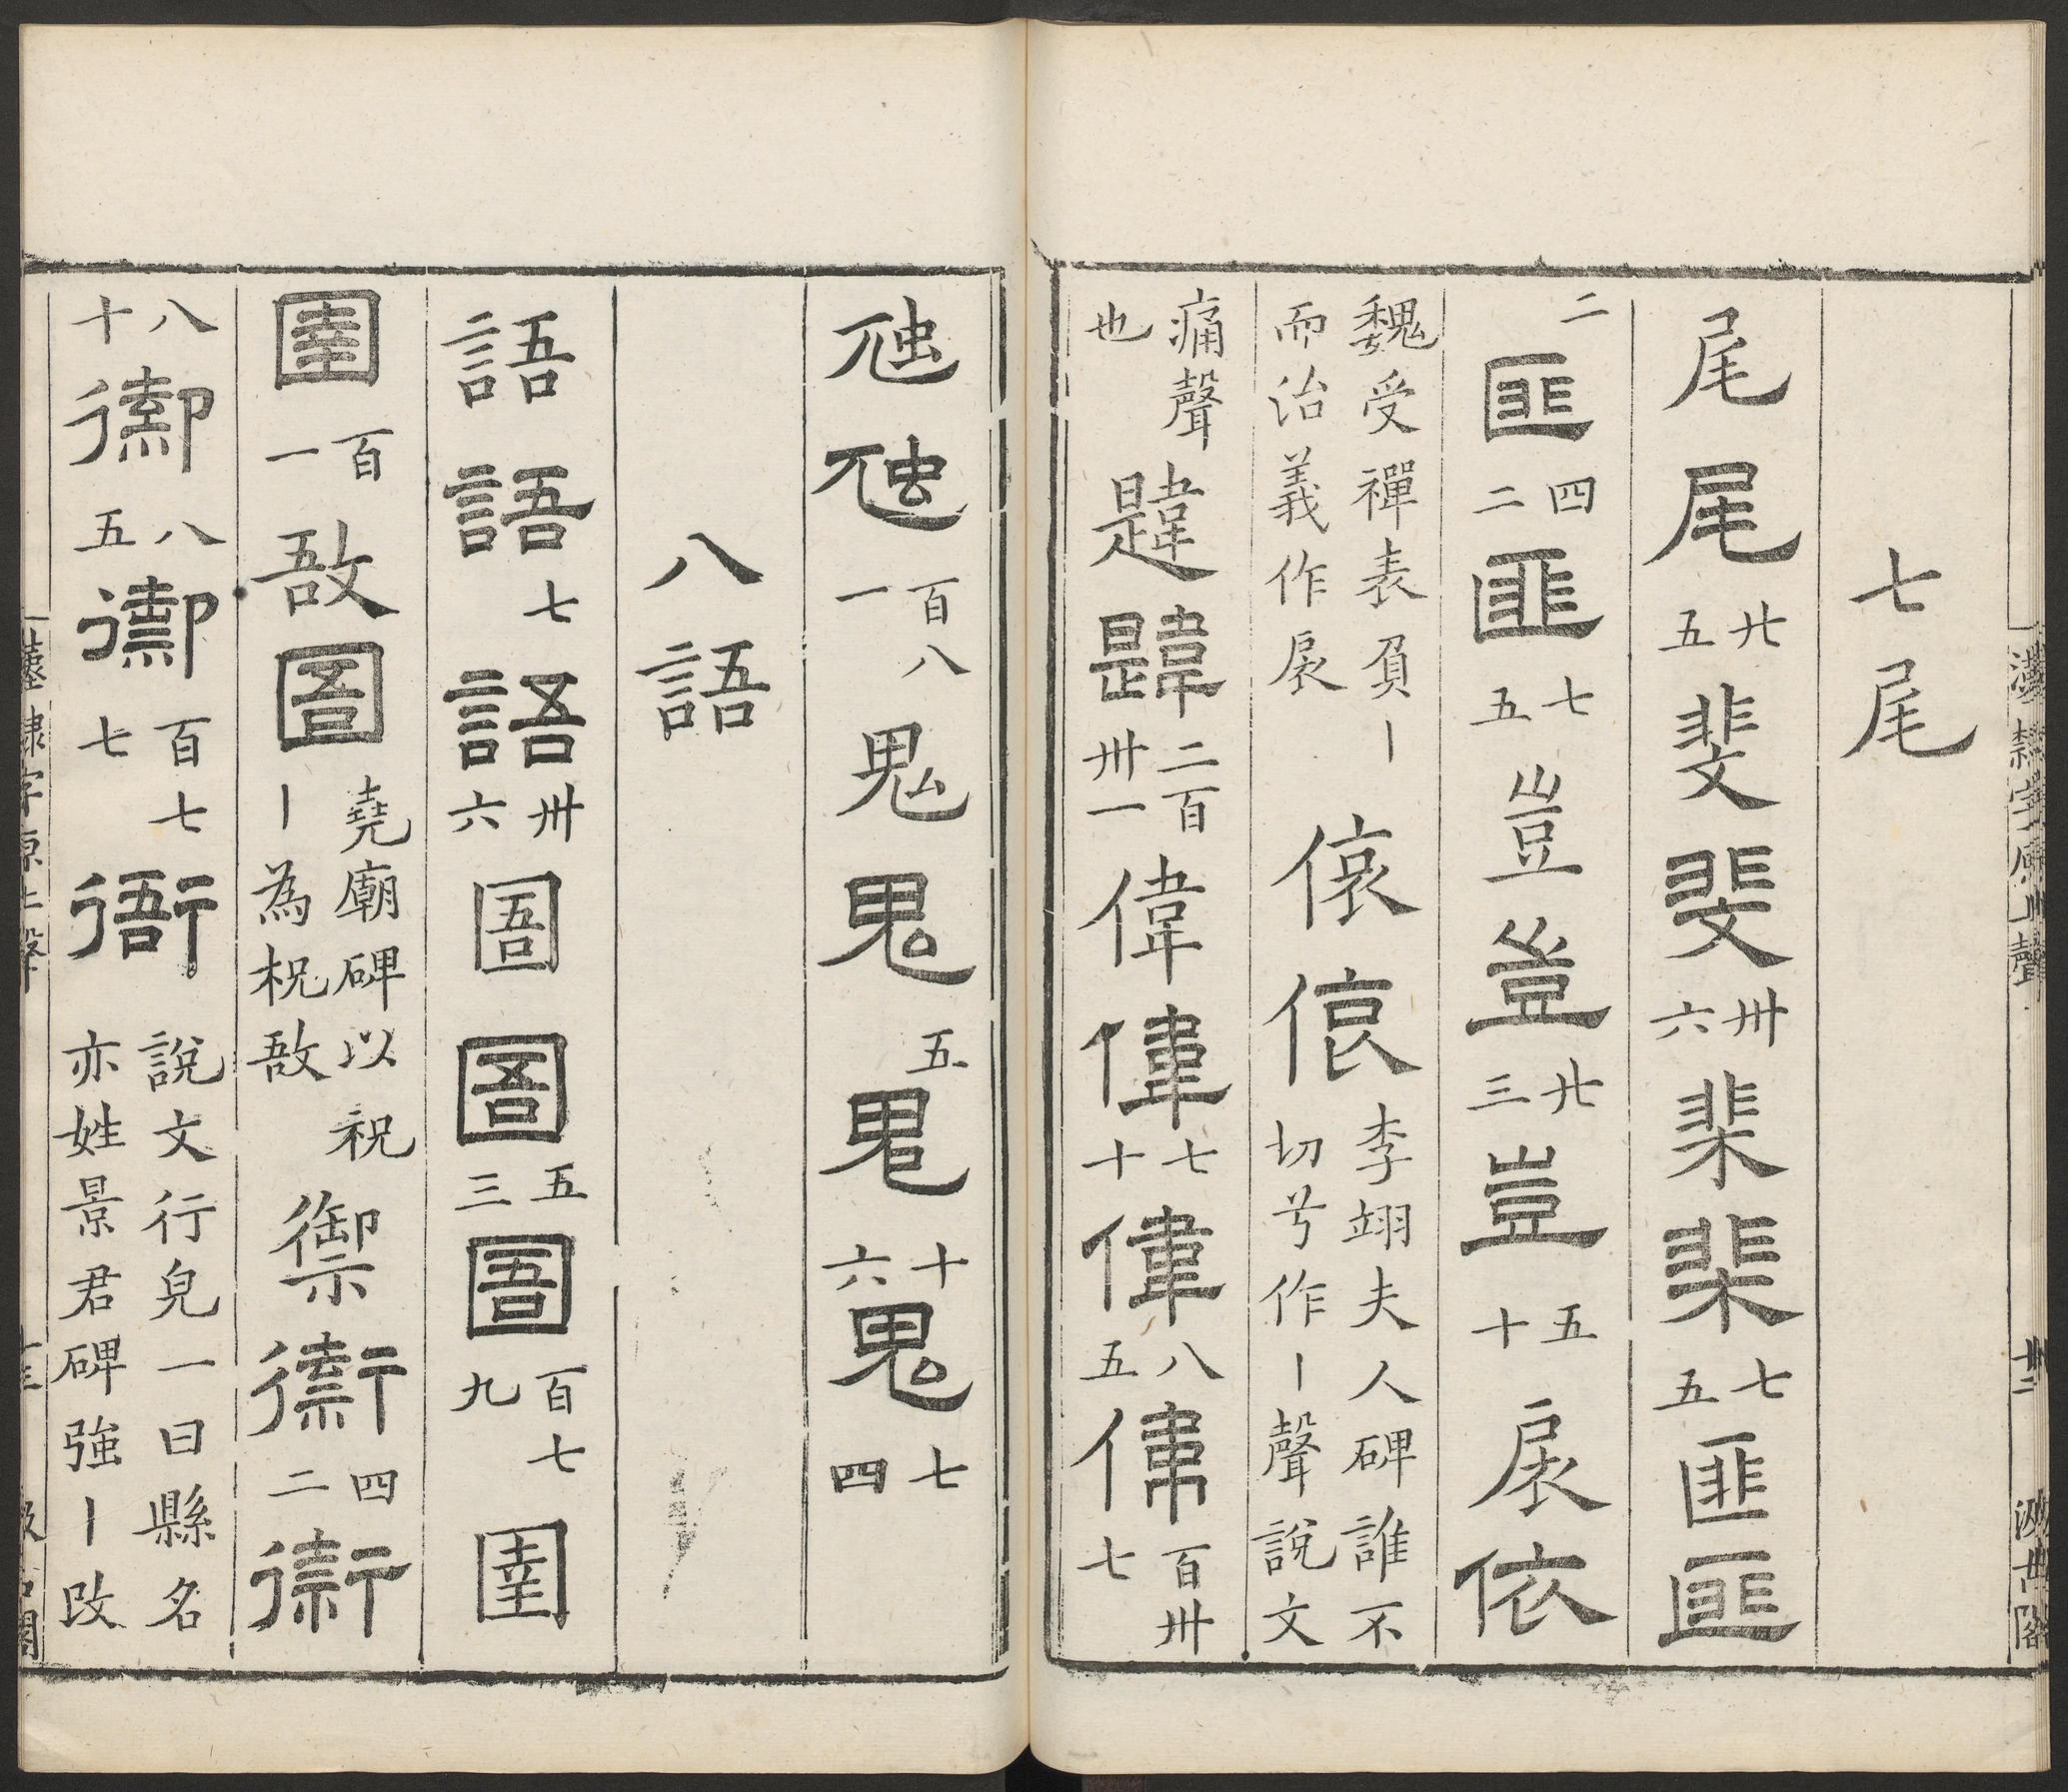 七尾
尾尾廿五斐斐卅六棐棐七五匪匪
二匪四二匪七五豈豈廿三豈五十扆依
魏受禪表負丨而治義作扆㥋㥋李翊夫人碑誰不切兮作丨聲說文
痛聲也韙韙二百卅一偉偉七十偉八五偉百卅七
虺虺百八一鬼鬼五鬼十六鬼七四
八語
語語七語卅六圄圄五三圄百七九圉
圉百一敔圄堯廟碑以祝丨為柷敔禦衘四二衘
八十禦八五禦百七七衙說文行皃一曰縣名亦姓景君碑強丨改
漢隸字原上聲
十二
汲古閣